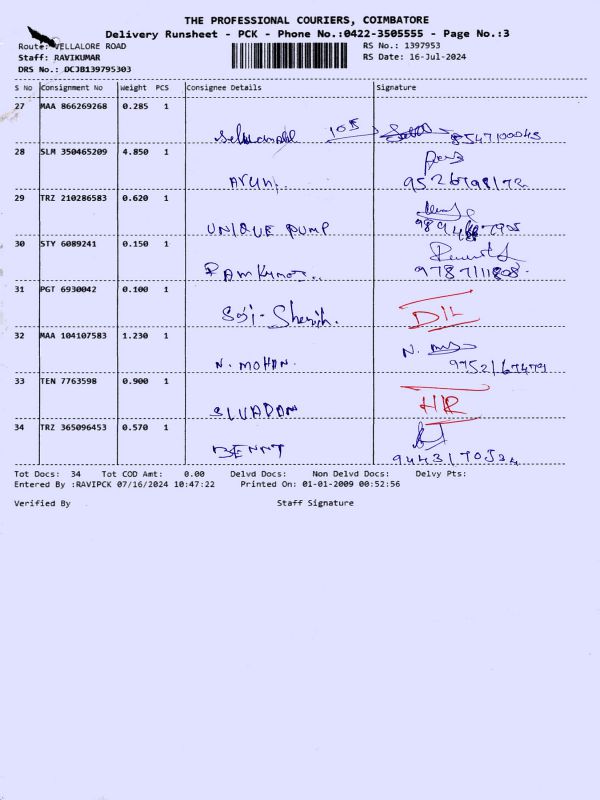 THE PROFESSIONAL COURIERS, COIMBATORE
Delivery Runsheet - PCK - Phone No.:0422-3505555 - Page No.:3
Route: VELLALORE ROAD RS No.: 1397953
Staff: RAVIKUMAR RS Date: 16-Jul-2024
DRS No.: DCJB139795303
S No Consignment No Weight PCS Consignee Details Signature
27 MAA 866269268 0.285 1
105 8547100045
28 SLM 350465209 4.850 1
Arun.
29 TRZ 210286583 0.620 1
UNIQUE PUMP
30 STY 6089241 0.150 1
Ramkumar.. 9787111808.
31 PGT 6930042 0.100 1
D/L
32 MAA 104107583 1.230 1
N. MOHAN.
33 TEN 7763598 0.900 1
34 TRZ 365096453 0.570 1
Tot Docs: 34 Tot COD Amt: 0.00 Delvd Docs: Non Delvd Docs: Delvy Pts:
Entered By :RAVIPCK 07/16/2024 10:47:22 Printed On: 01-01-2009 00:52:56
Verified By Staff Signature